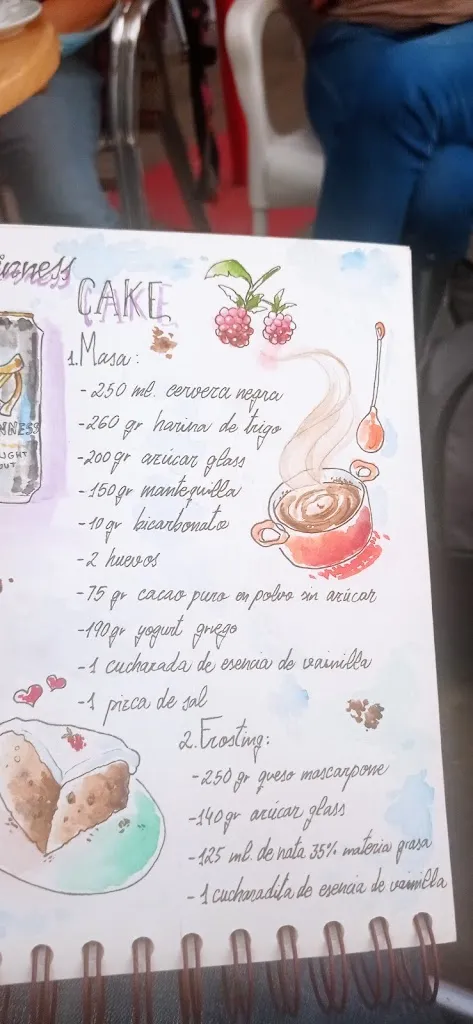 inness
CAKE
NNESS
UGHT
OUT
1. Masa:
- 250 ml. cerveza negra
- 260 gr harina de trigo
- 200 gr azúcar glass
- 150 gr mantequilla
- 10 gr bicarbonato
- 2 huevos
- 75 gr cacao puro en polvo sin azúcar
- 190 gr yogurt griego
- 1 cucharada de esencia de vainilla
- 1 pizca de sal
2. Frosting:
- 250 gr queso mascarpone
- 140 gr azúcar glass
- 125 ml. de nata 35% materia grasa
- 1 cucharadita de esencia de vainilla